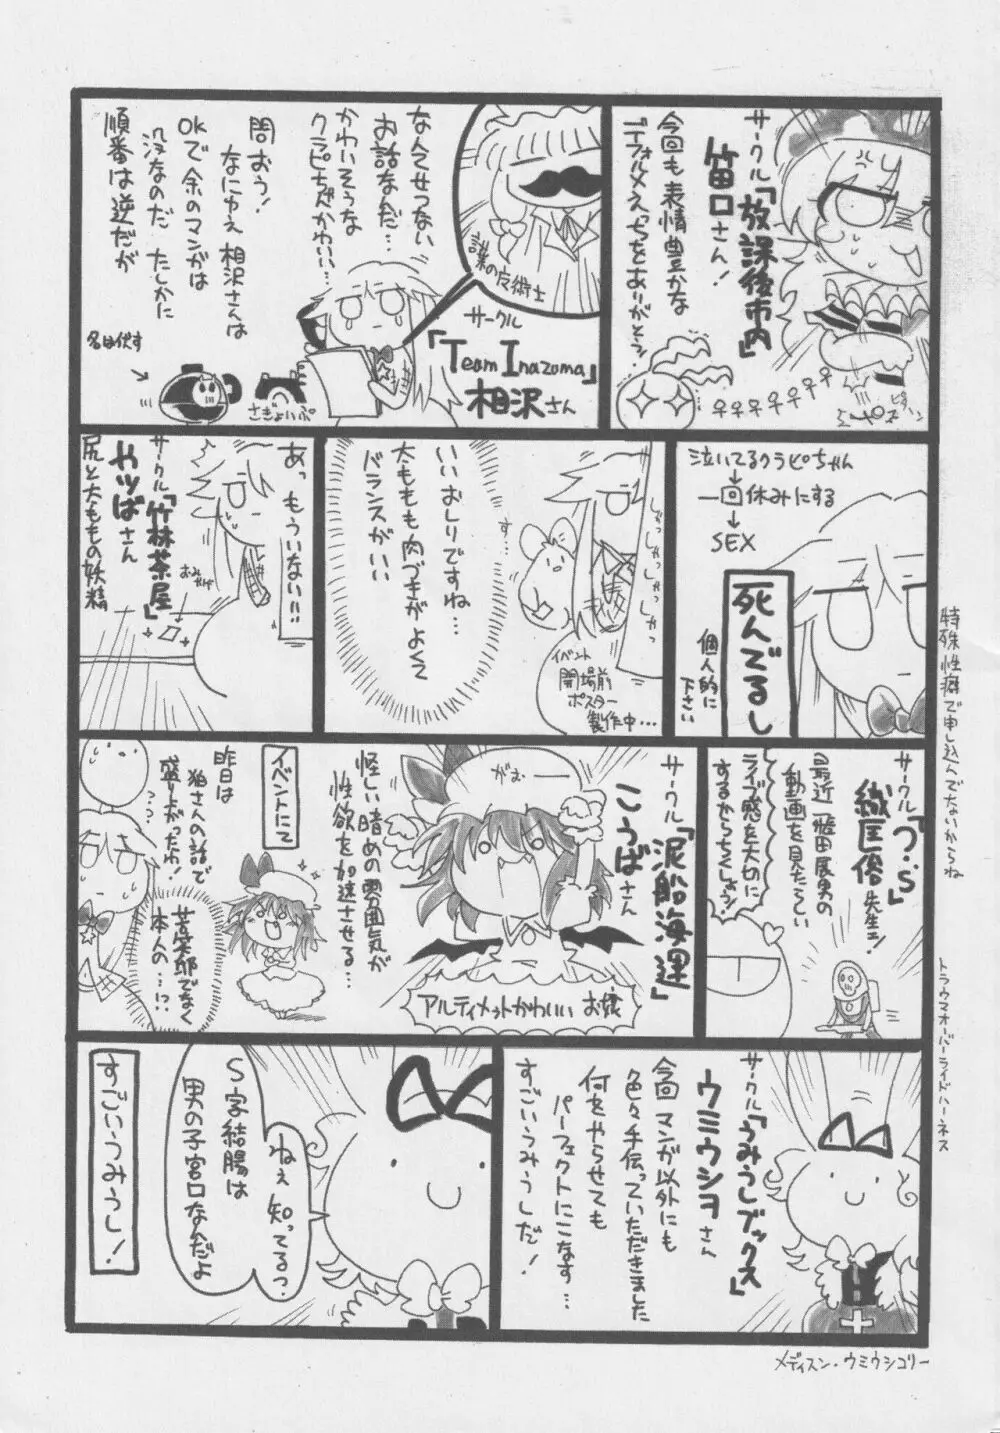 サークル「放課後市内」
笛口さん!
今回も表情豊かな
デフォルメえっちを
ありがとう!
サークル
「Team Inazuma」
相沢さん
なんてせつない
お話なんだ…
かわいそうな
クラピちゃんかわいい…
問おう!
なにゆえ相沢さんは
OKで余のマンガは
没なのだ たしかに
順番は逆だが
名は伏す
さぎょいぷ
泣いてるクラピちゃん
↓
一回休みにする
↓
SEX
死んでるし
個人的に
下さい
特殊性癖で申し込んでないからね
イベント
開場前
ポスター
製作中…
す…
いいおしりですね…
太ももも肉づきがよくて
バランスがいい
あっ もういない!!
サークル「竹林茶屋」
やツばさん
尻と太ももの妖精
織匡俊先生ェ!
最近
動画を見たらしい
ライブ感を大切に
するからちくしょう!
トラウマオーバーライドハーネス
サークル「泥船海運」
こうばさん
がおー
アルティメットかわいいお嬢
怪しい暗めの雰囲気が
性欲を加速させる…
イベントにて
昨日は
狛さんの話で
盛り上がったわ!
苦笑邸でなく
本人の…!?
サークル「うみうしブックス」
ウミウシヨさん
今回マンガ以外にも
色々手伝っていただきました
何をやらせても
パーフェクトにこなす…
すごいうみうしだ!
ねぇ知ってるっ
S字結腸は
男の子宮口なんだよ
すごいうみうし!
メディスン・ウミウシコリー